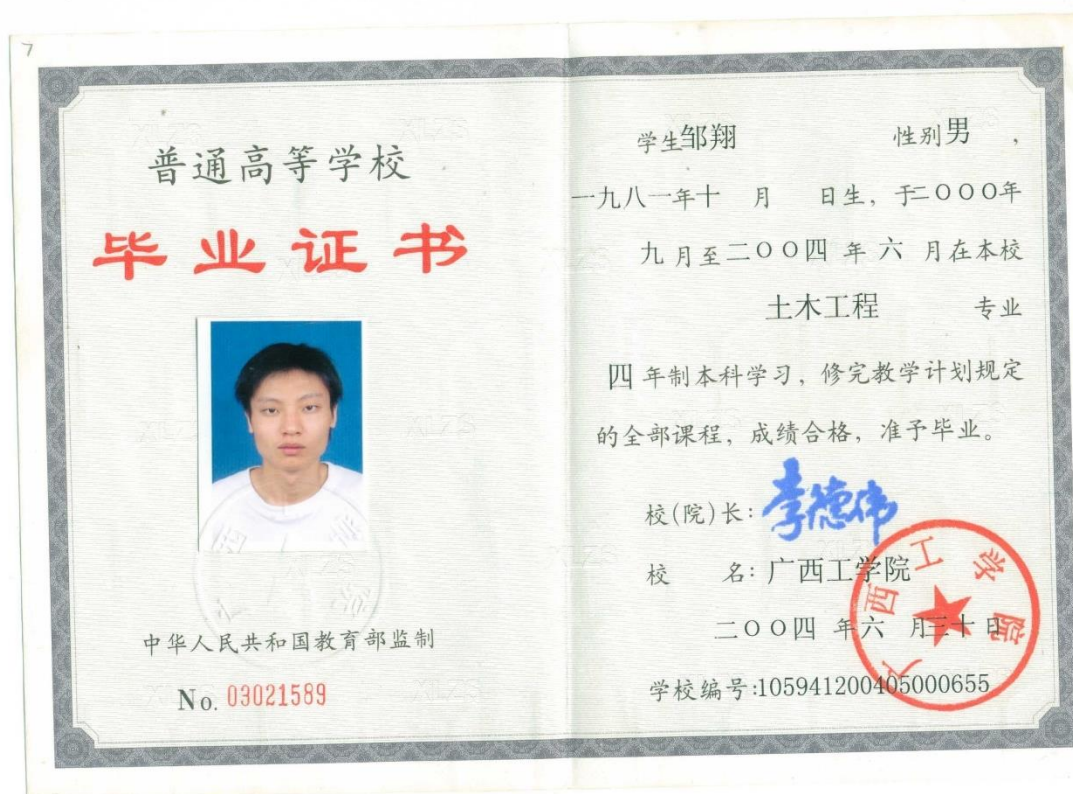 7
普通高等学校
毕业证书
中华人民共和国教育部监制
No. 03021589
学生邹翔 性别男,
一九八一年十 月 日生, 于二〇〇〇年
九月至二〇〇四 年 六 月在本校
土木工程 专业
四 年制本科学习, 修完教学计划规定
的全部课程, 成绩合格, 准予毕业。
校(院)长: 李德伟
校 名: 广西工学院
二〇〇四 年六 月三十日
学校编号:105941200405000655
广西工学院